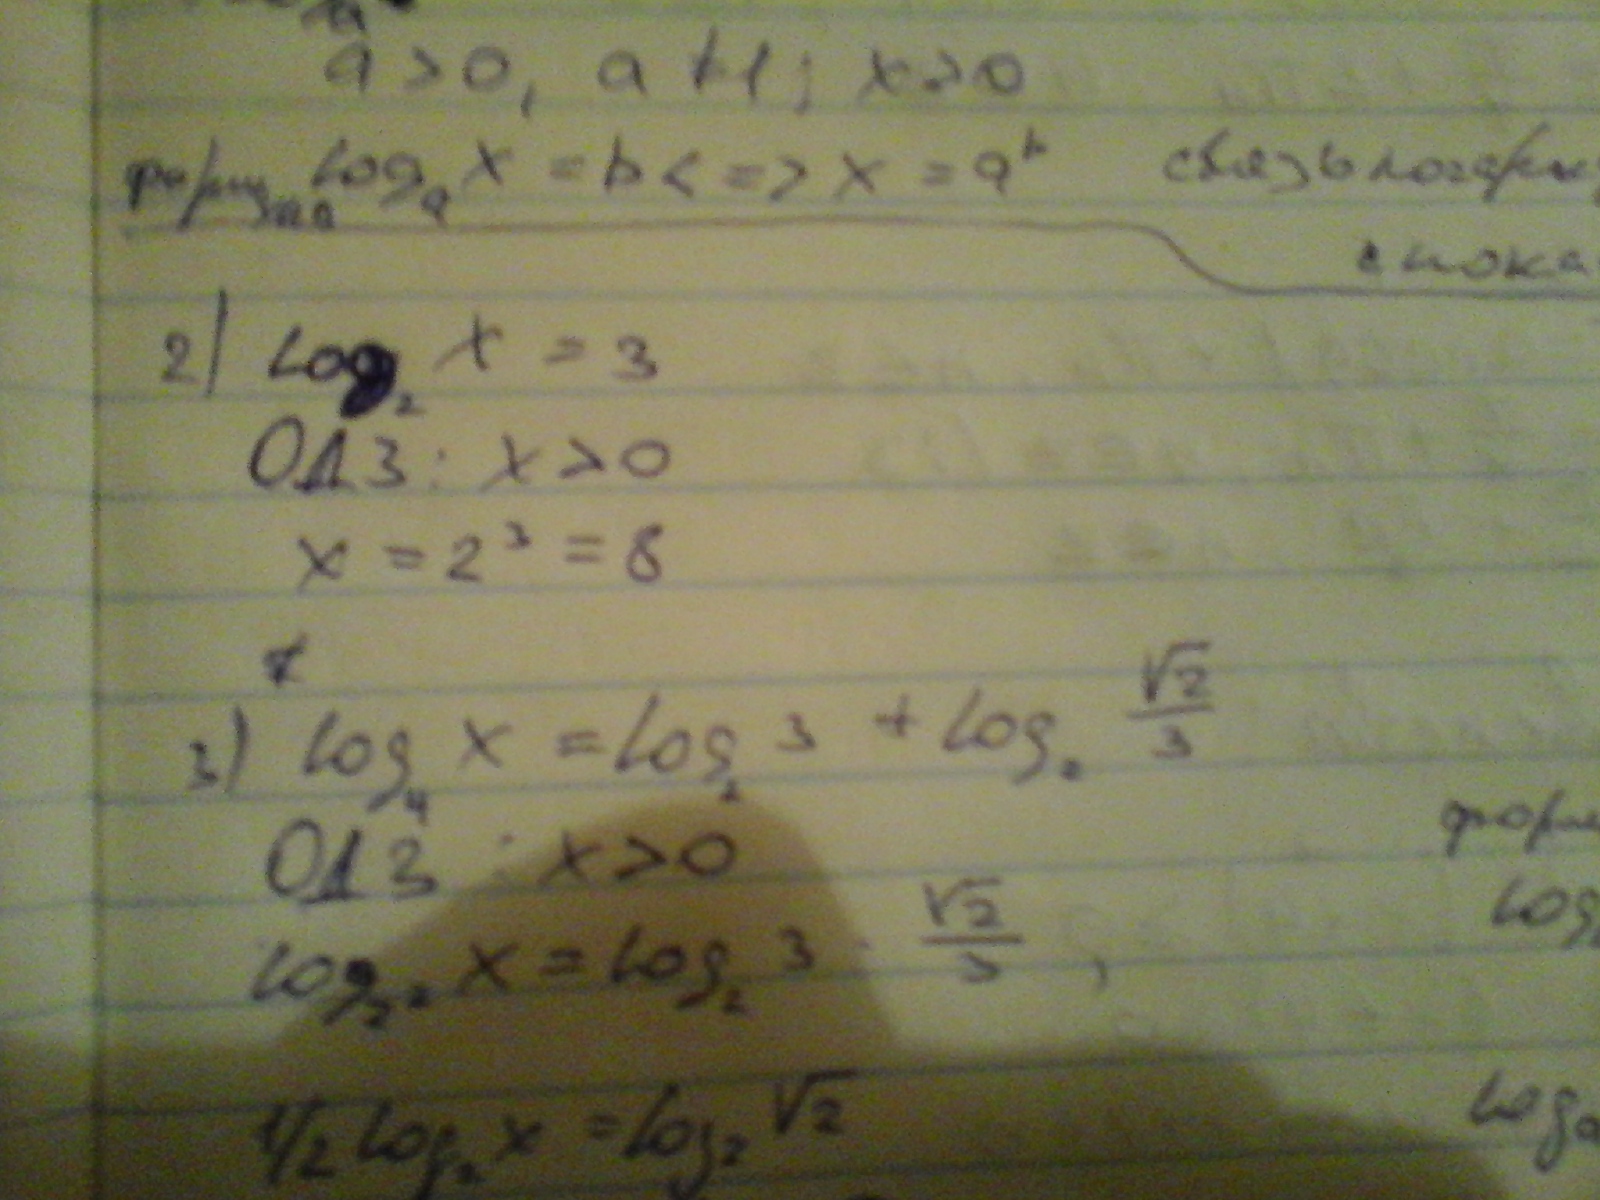 a > 0, a ≠ 1; x > 0
формула log_a x = b <=> x = a^b связь логарифм
с пока
2) log_2 x = 3
ОДЗ: x > 0
x = 2^3 = 8
3) log_4 x = log_2 3 + log_2 √2/3
ОДЗ: x > 0
форм
log_2^2 x = log_2 3 · √2/3,
log
1/2 log_2 x = log_2 √2
log_a